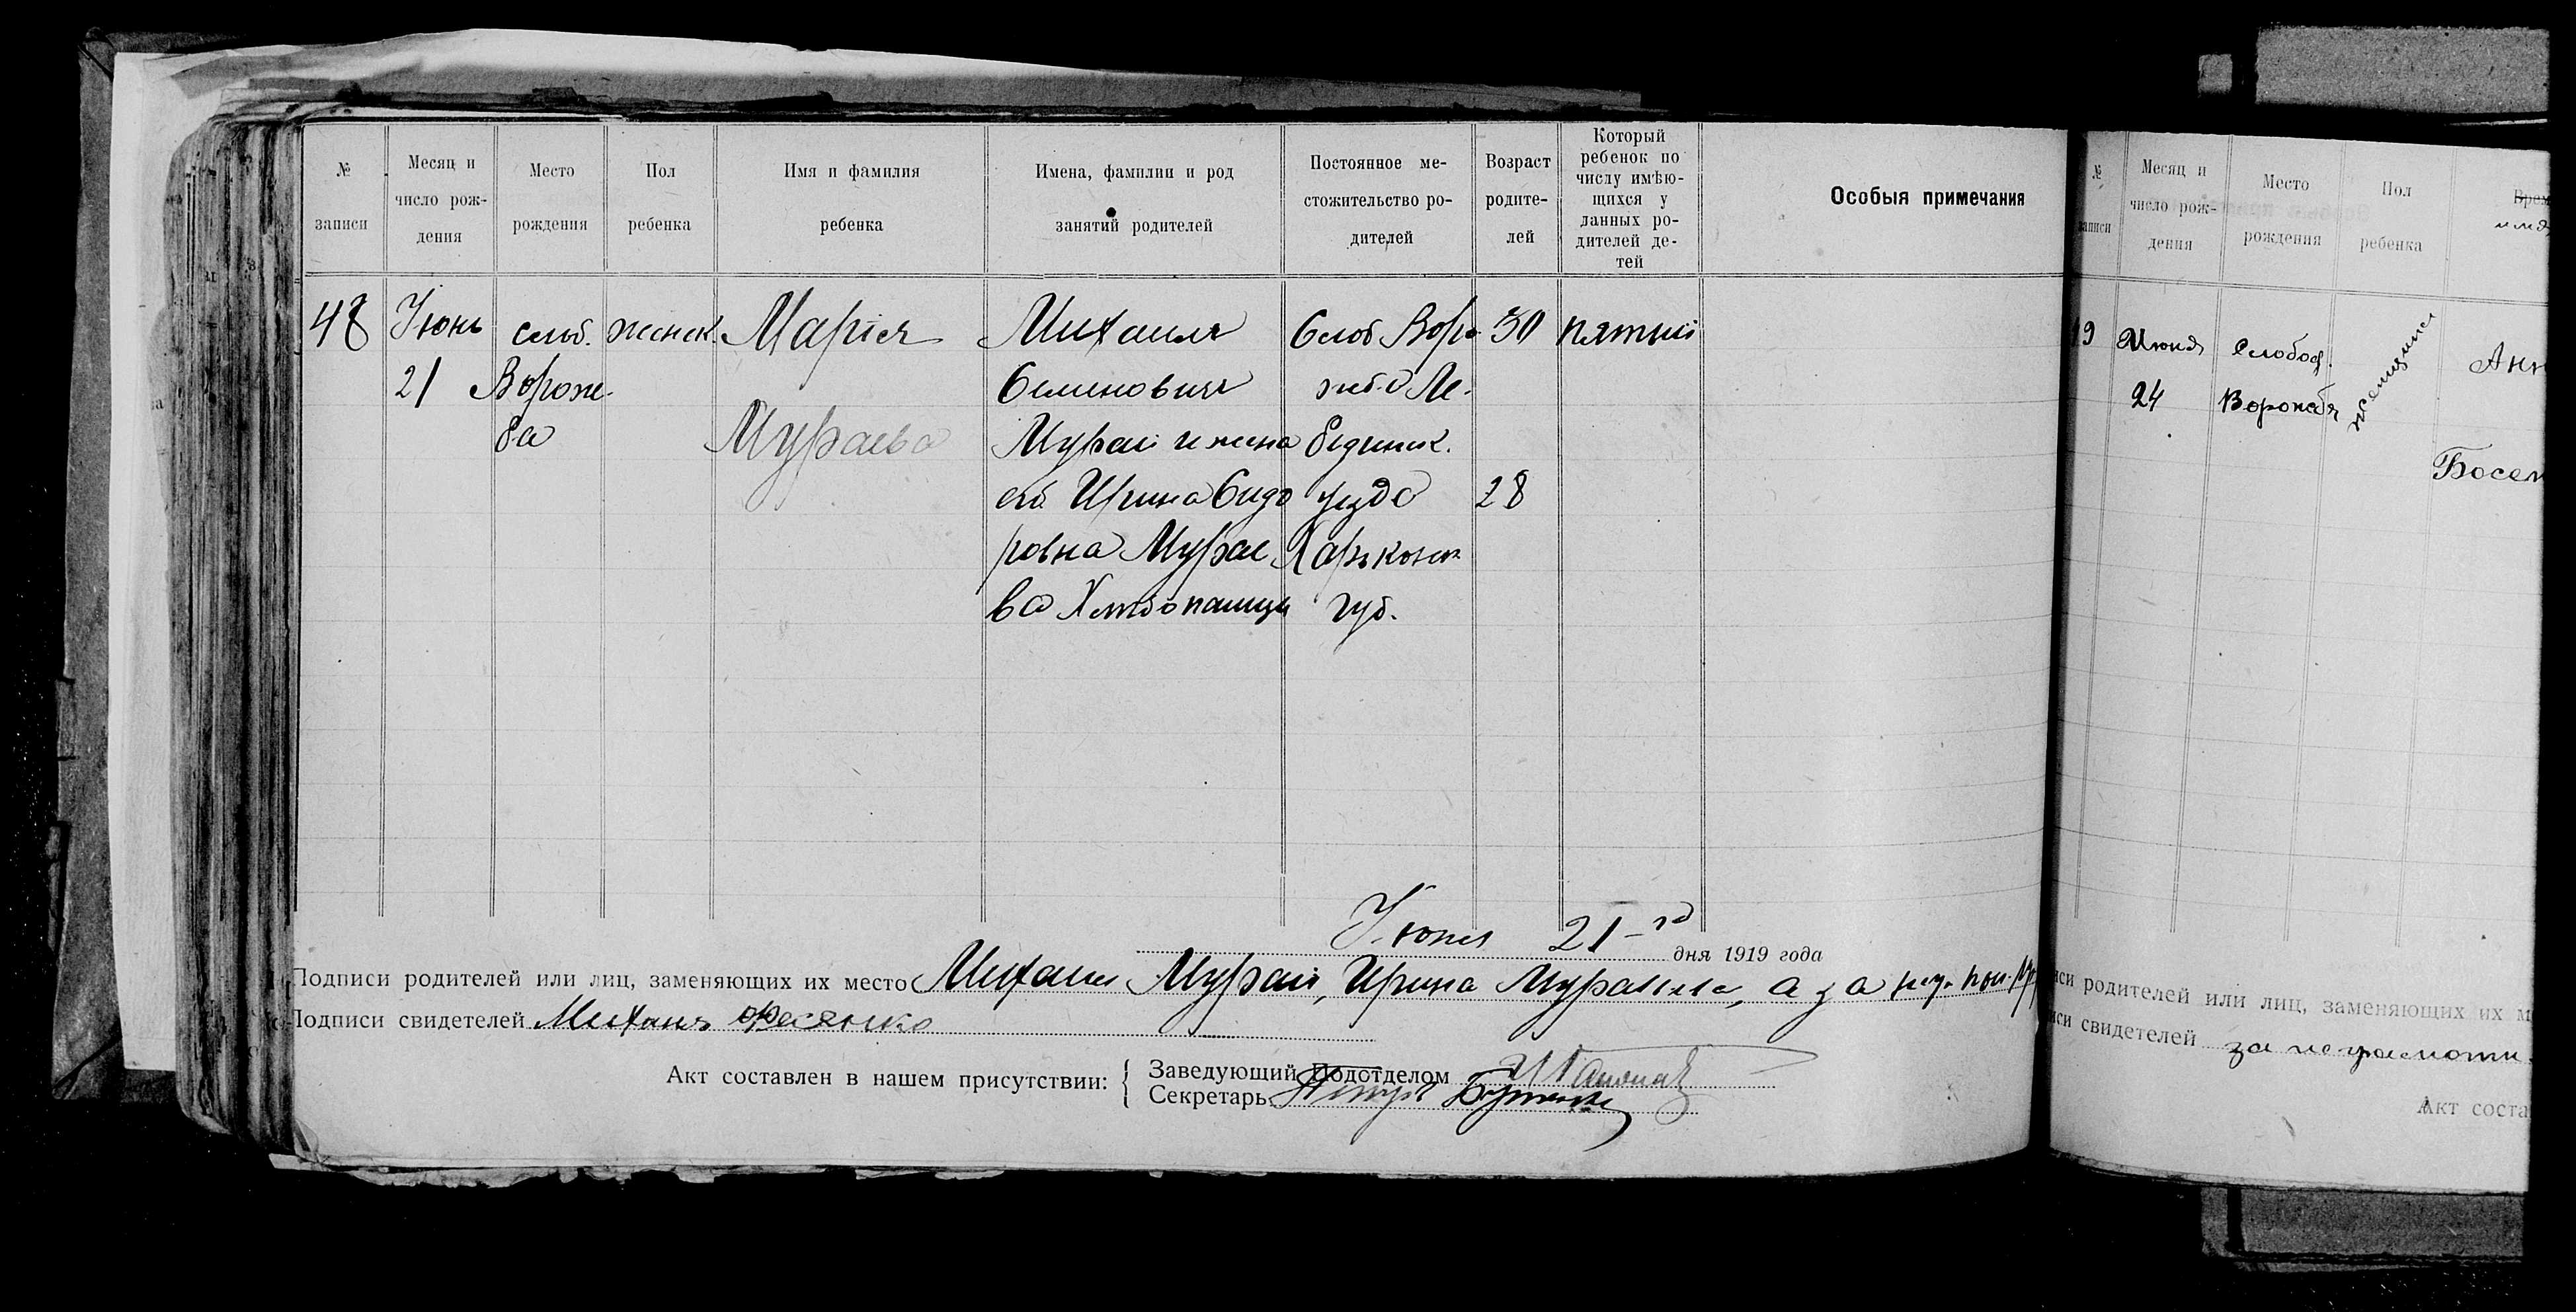 № записи
Месяц и число рождения
Место рождения
Пол ребенка
Имя и фамилия ребенка
Имена, фамилии и род занятий родителей
Постоянное местожительство родителей
Возраст родителей
Который ребенок по числу имѣющихся у данных родителей детей
Особыя примечания
48
Іюнь
21
слоб.
Вороже-
ба
женск.
Марія
Мураева
Михаилъ
Семеновичъ
Мурай и жена
его Ирина Сидо
ровна Мурае
ва Хлебопашцы
Слоб Воро
жба Ле-
бединск.
уезда
Харьковск
губ.
30
28
пятый
Іюня 21-го дня 1919 года
Подписи родителей или лиц, заменяющих их место Михаил Мурай, Ирина Мураева, а за
Подписи свидетелей Михаил
Акт составлен в нашем присутствии:
Заведующий Подотделом
Секретарь
№ записи
Месяц и число рождения
Место рождения
Пол ребенка
9
Июня
24
Слобод.
Ворожба
женщина
Анн
Босен
иси родителей или лиц, заменяющих их м
иси свидетелей за неграмотн.
Акт соста